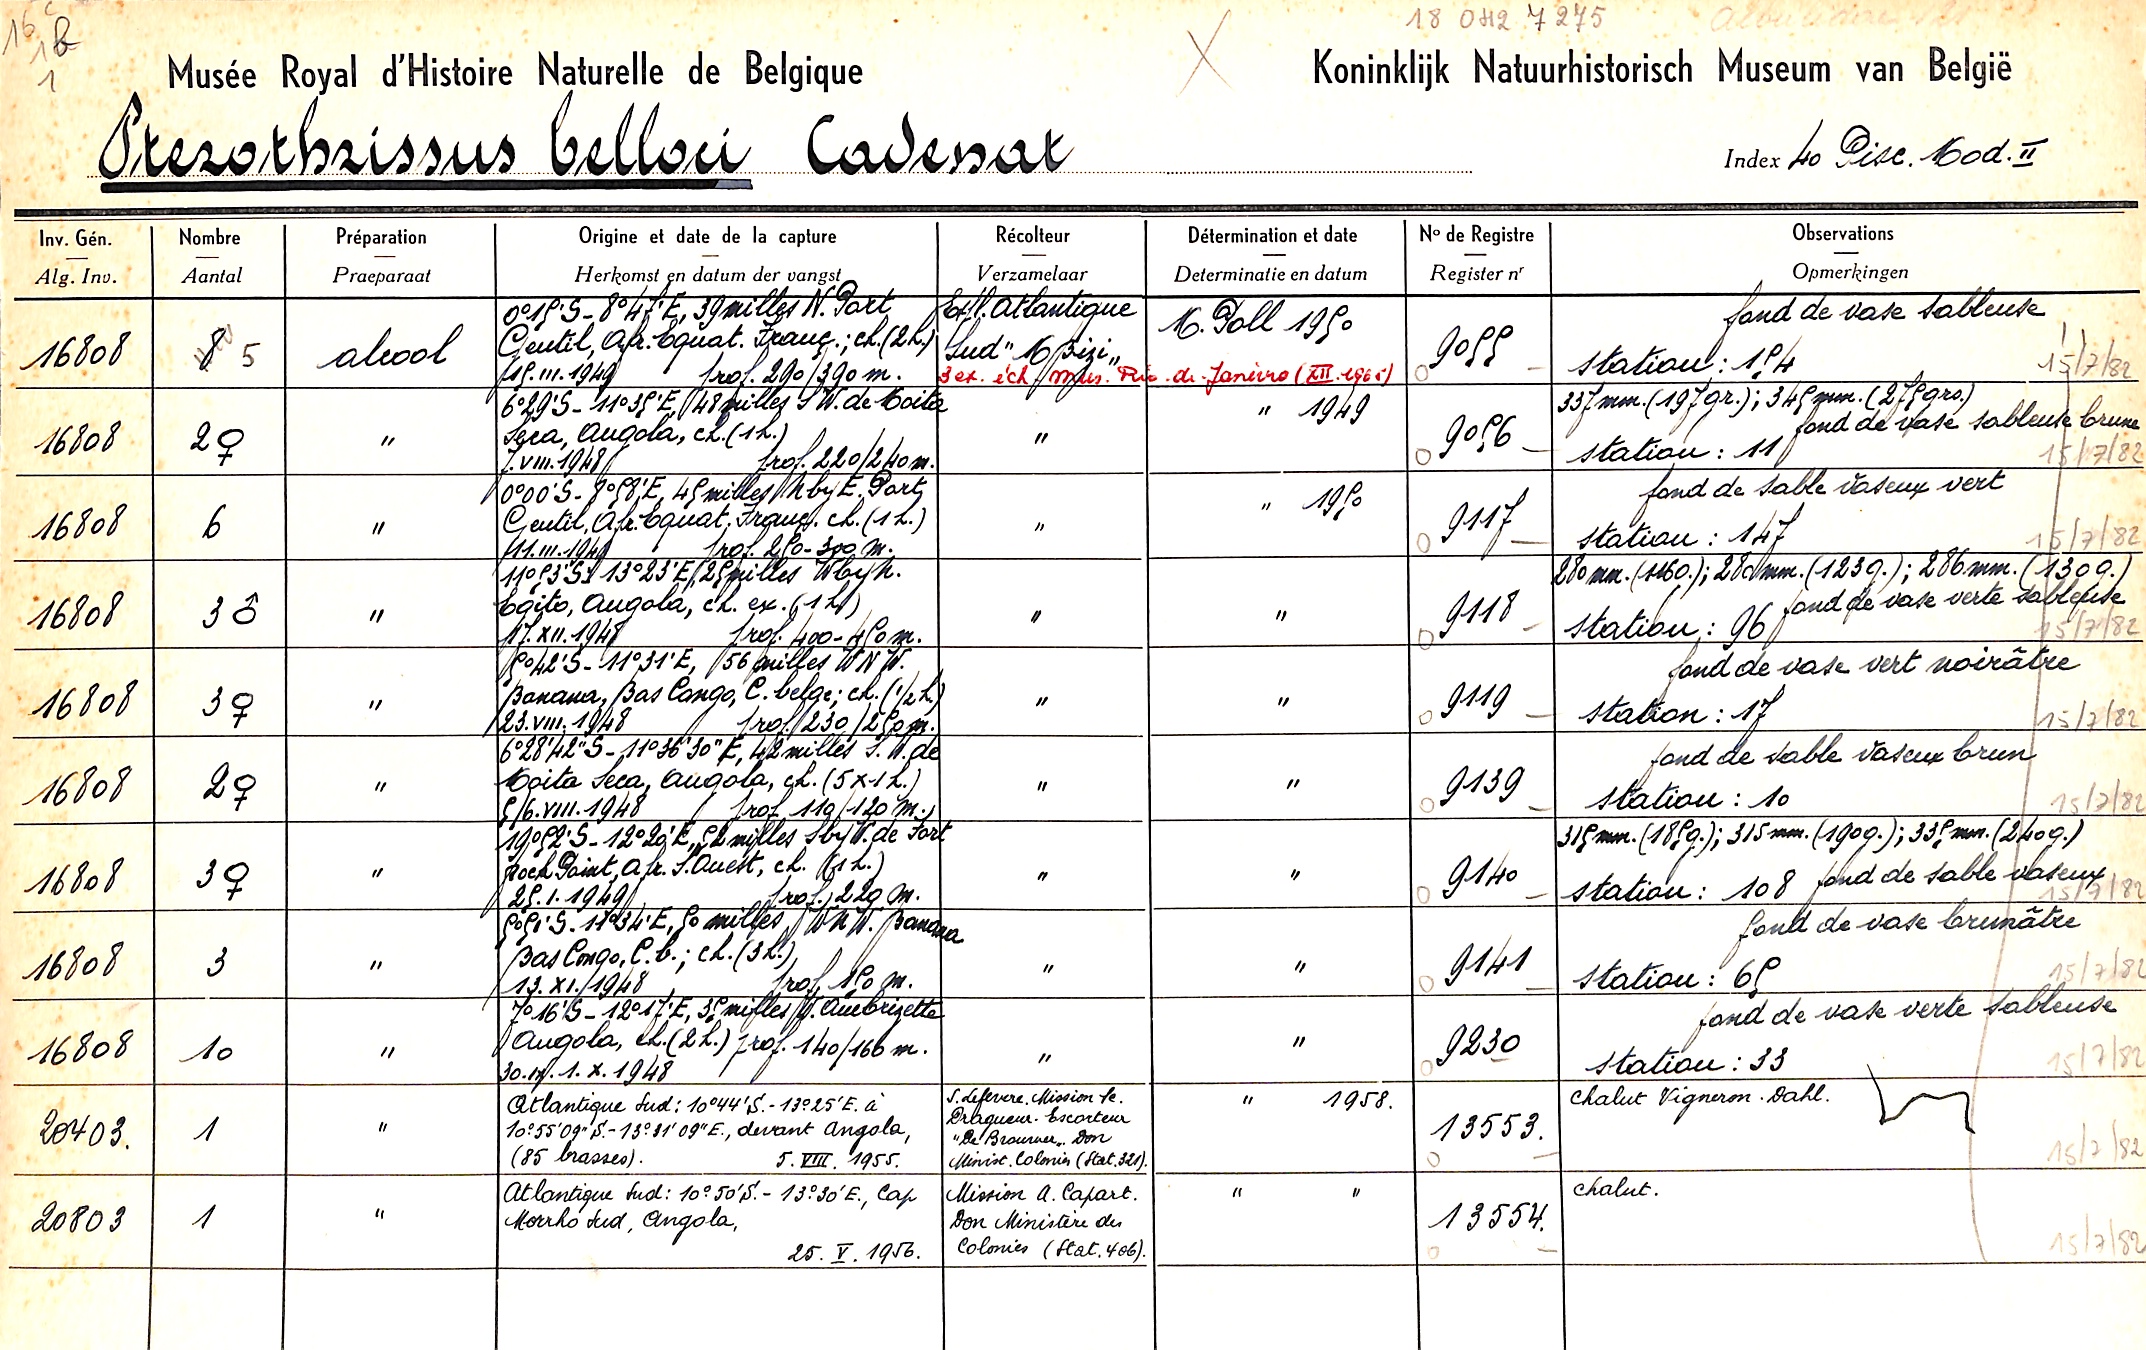 16 c
1 b
1
18 042 7275
X
Musée Royal d'Histoire Naturelle de Belgique
Koninklijk Natuurhistorisch Museum van België
Pterothrissus belloci Cadenat
Index 40 Pisc. Mod. II
Inv. Gén. Nombre Préparation Origine et date de la capture Récolteur Détermination et date No de Registre Observations
Alg. Inv. Aantal Praeparaat Herkomst en datum der vangst Verzamelaar Determinatie en datum Register nr Opmerkingen
0°15'S - 8°47'E, 39 milles N. Port
Gentil, Afr. Equat. Franç.; ch. (2h.)
15.III.1949 prof. 290/390 m.
16808 8 5 alcool
Exp. Atlantique
Sud "M'Bizi"
3 ex. éch. Mus. Rio de Janeiro (XII.1965)
M. Poll 1950
9055
fond de vase sableuse
station : 154
15/7/82
6°29'S - 11°35'E, 48 milles S W. de Moita
Seca, Angola, ch. (1h.)
7.VIII.1948 prof. 220/240 m.
16808 2♀ " " " 1949 9056
337 mm. (197 gr.); 345 mm. (275 grs.)
fond de vase sableuse brune
station : 11
15/7/82
0°00'S - 8°58'E, 45 milles N by E. Port
Gentil, Afr. Equat. Franç. ch. (1h.)
11.III.1949 prof. 250-300 m.
16808 6 " " " 1950 9117
fond de sable vaseux vert
station : 147
15/7/82
11°53'S - 13°23'E, 25 milles W by N.
Egito, Angola, ch. ex. (1h)
17.XII.1948 prof. 400-450 m.
16808 3♂ " " " 9118
280 mm. (116 g.); 280 mm. (123 g.); 286 mm. (130 g.)
fond de vase verte sableuse
station : 96
15/7/82
5°42'S - 11°31'E, 56 milles W N W.
Banana, Bas Congo, C. belge; ch. (1/2 h.)
23.VIII.1948 prof. 230/250 m.
16808 3♀ " " " 9119
fond de vase vert noirâtre
station : 17
15/7/82
6°28'42"S - 11°36'30"E, 42 milles S. W. de
Moita Seca, Angola, ch. (5x1h.)
5/6.VIII.1948 prof. 119/120 m.
16808 2♀ " " " 9139
fond de sable vaseux brun
station : 10
15/7/82
19°52'S - 12°20'E, 52 milles S by W. de Fort
Rock Point, Afr. S. Ouest, ch. (1h.)
25.I.1949 prof. 220 m.
16808 3♀ " " " 9140
315 mm. (185 g.); 315 mm. (190 g.); 335 mm. (240 g.)
station : 108 fond de sable vaseux
15/7/82
5°51'S - 11°34'E, 50 milles W N W. Banana
Bas Congo, C. b.; ch. (3h.)
13.XI.1948 prof. 150 m.
16808 3 " " " 9141
fond de vase brunâtre
station : 65
15/7/82
7°16'S - 12°17'E, 35 milles W. Ambrizette
Angola, ch. (2h.) prof. 140/166 m.
30.IX. 1.X.1948
16808 10 " " " 9230
fond de vase verte sableuse
station : 33
15/7/82
20403. 1 "
Atlantique Sud : 10°44'S. - 13°25'E. à
10°55'09"S. - 13°31'09"E., devant Angola,
(85 brasses). 5.VIII.1955.
S. Lefevere. Mission le
Dragueur-Escorteur
"De Brouwer". Don
Minist. Colonies (Stat. 321).
" 1958.
13553.
chalut Vigneron-Dahl.
15/7/82
20803 1 "
Atlantique Sud : 10°50'S. - 13°30'E., Cap
Morrho Sud, Angola,
25.V.1956.
Mission A. Capart.
Don Ministère des
Colonies (Stat. 406).
" "
13554.
chalut.
15/7/82